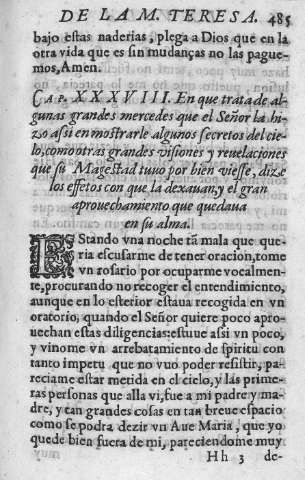 DE LA M. TERESA. 485
bajo estas naderias, plega a Dios que en la
otra vida que es sin mudanças no las pague-
mos, Amen.
CAP. XXXVIII. En que trata de al-
gunas grandes mercedes que el Señor la hi-
zo assi en mostrarle algunos secretos del cie-
lo, como otras grandes visiones y reuelaciones
que su Magestad tuuo por bien viesse, dize
los effetos con que la dexauan, y el gran
aprouechamiento que quedaua
en su alma.
EStando vna noche tã mala que que-
ria escusarme de tener oracion, tome
vn rosario por ocuparme vocalmen-
te, procurando no recoger el entendimiento,
aunque en lo esterior estaua recogida en vn
oratorio, quando el Señor quiere poco apro-
uechan estas diligencias: estuue assi vn poco,
y vinome vn arrebatamiento de spiritu con
tanto impetu que no vuo poder resistir, pa-
reciame estar metida en el cielo, y las prime-
ras personas que alla vi, fue a mi padre y ma-
dre, y tan grandes cosas en tan breue espacio
como se podra dezir vn Aue Maria, que yo
quede bien fuera de mi, pareciendome muy
Hh 3 de-